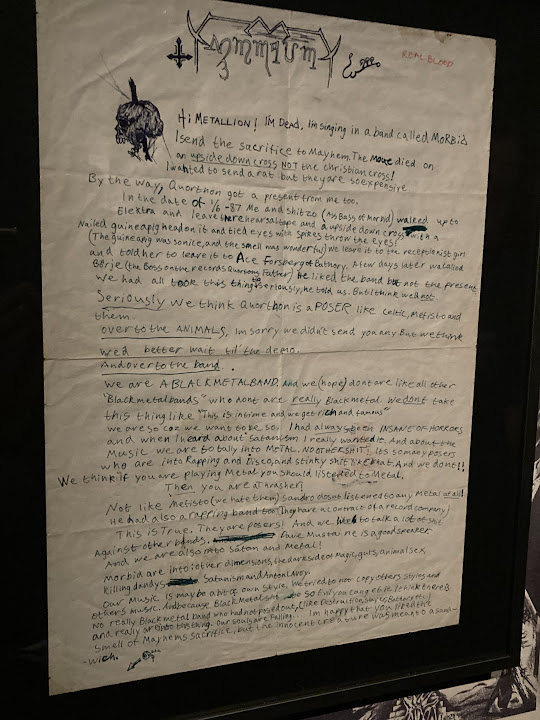 REAL BLOOD
Hi METALLION! I'm DEAD. I'm singing in a band called MORBID
I send the sacrifice to Mayhem. The Mouse died on
an upside down cross NOT the christian cross!
I wanted to send a rat but they are so expensive
By the way, Quorthon got a present from me too.
In the date of 1/6-87 Me and shitzo (Ass Bass of Morbid) walked up to
Elektra and leave there rehearsaltape and a upside down cross with a
Nailed guineapig head on it and tied eyes with spikes throw the eyes!
(The guineapig was so nice, and the smell was wonderful) We leave it to the receptionist girl
and told her to leave it to Ace Forsberg of Bathory. A few days later we called
Börje (the Boss on the records Quorthons Father) he liked the band but not the present
We had all took this thing to seriously, he told us. But I think we did not
Seriously We think Quorthon is a POSER like Celtic, Mefisto and
them.
over to the ANIMALS, Im sorry we didn't send you any. But we think
we'd better wait til' the demo.
And over to the band...
We are A BLACK METAL BAND. And we (hope) dont are like all other
"Black metal bands" who aont are really Black metal. We dont take
this thing like "This is in time and we get rich and famous"
we are so coz we want to be so. I had always been INSANE OF HORRORS
and when I heard about Satanism I really wanted it. And about the
Music we are totally into METAL. NO OTHER SHIT! Its so many posers
who are into Rapping and Disco, and stinky shit like that. And we don't!!
We think if you are playing Metal you should listened to Metal.
Then you are a Thrasher!
Not like Mefisto (we hate them) Sandro dosnt listened to any Metal at all!
He had also a rapping band too. They have a contract of a record company!
This is True. They are posers! And we like to talk a lot of shit
Against other bands. Dave Mustaine is a good speaker
And we are also into Satan and Metal!
Morbid are into: other dimensions, the darkside of Magis, guts, animal sex,
killing dandys Satanism and Anton Lavey.
Our Music is maybe a bit of own style. We tried to not copy others styles and
others Music. And because Black Metal should be so Evil you can get it. I think there is
No really Black metal band who had not posed out, (like Destruction, Slayer, Bathory etc)
and really are into this thing. Our souls are Falling. I'm happy that you liked the
smell of Mayhems Sacrifice, but the innocent creature was meant to a sand-
-wich.